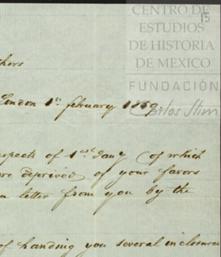 CENTRO DE
ESTUDIOS
DE HISTORIA
DE MEXICO
FUNDACIÓN
Carlos Slim
15
London 1st february 1869
spects of 1st Jany (of which
re deprived of your favors
n letter from you by the
of handing you several inclosures